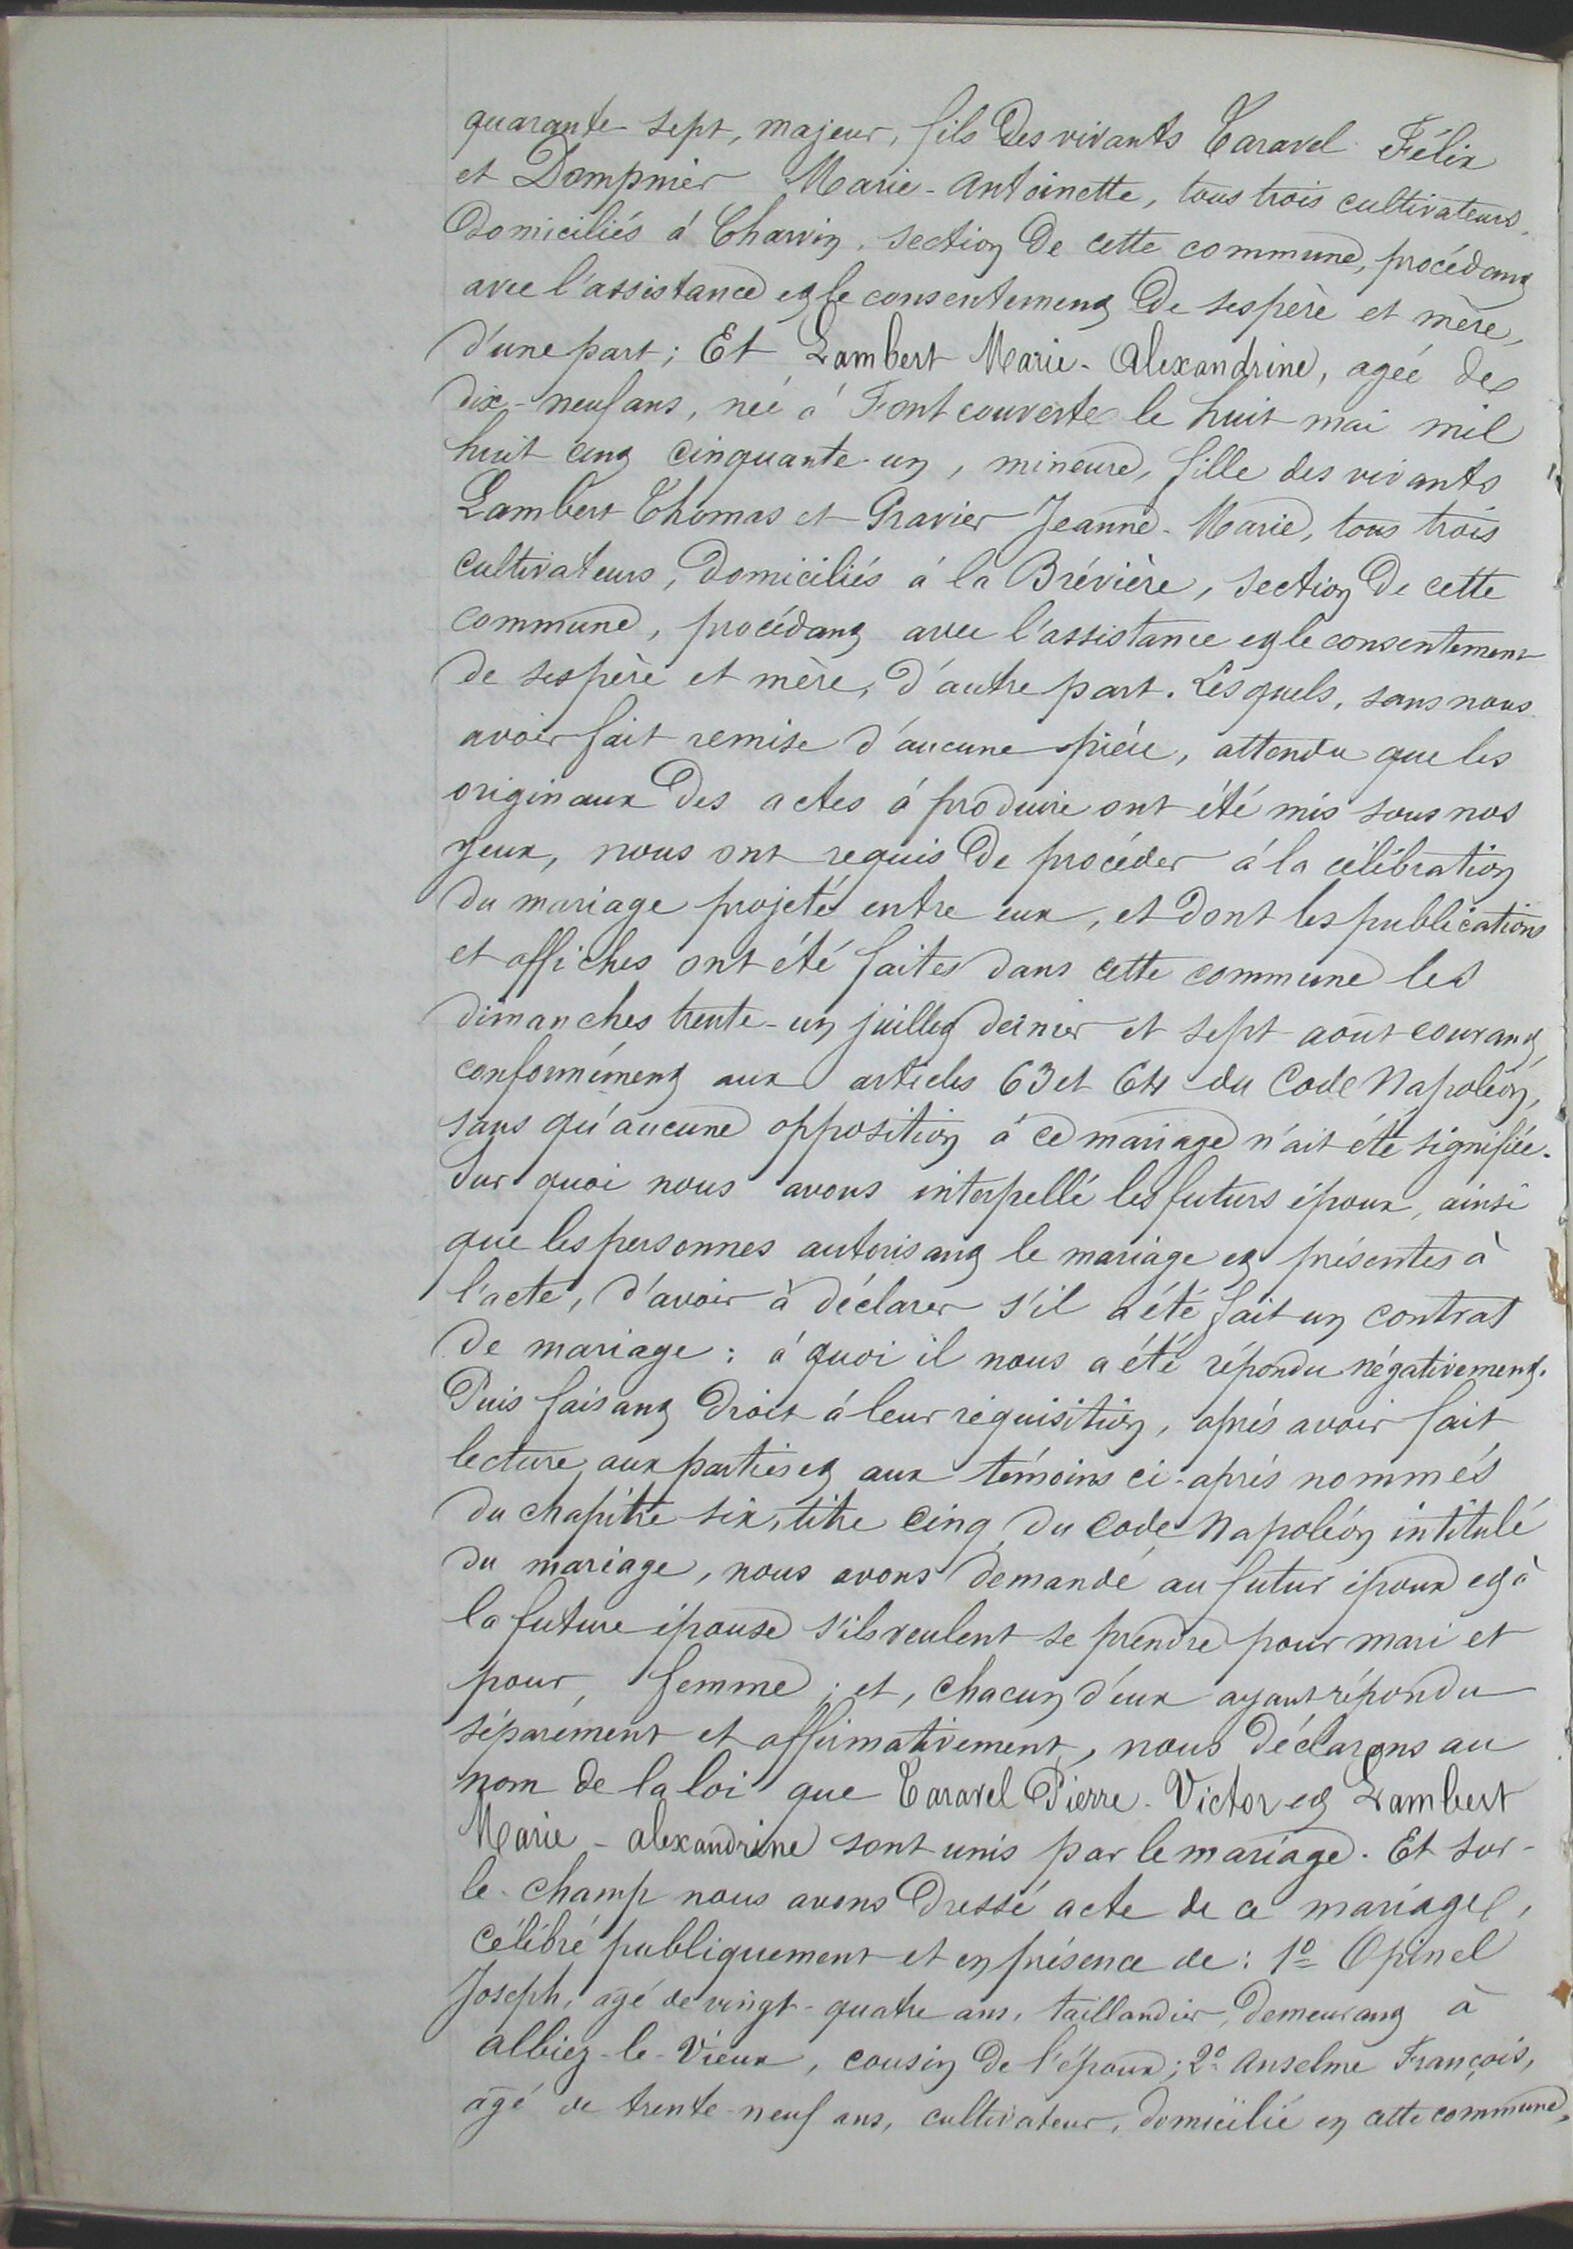 quarante-sept, majeur, fils des vivants Taravel Félix
et Dompnier Marie-Antoinette, tous trois cultivateurs,
domiciliés à Charvin, section de cette commune, procédant
avec l'assistance et le consentement de ses père et mère,
d'une part; Et Lambert Marie-Alexandrine, agée de
dix-neuf ans, née à Fontcouverte le huit mai mil
huit cent cinquante-un, mineure, fille des vivants
Lambert Thomas et Gravier Jeanne-Marie, tous trois
cultivateurs, domiciliés à la Brévière, section de cette
commune, procédant avec l'assistance et le consentement
de ses père et mère, d'autre part. Lesquels, sans nous
avoir fait remise d'aucune pièce, attendu que les
originaux des actes à produire ont été mis sous nos
yeux, nous ont requis de procéder à la célébration
du mariage projeté entre eux, et dont les publications
et affiches ont été faites dans cette commune les
dimanches trente-un juillet dernier et sept août courant,
conformément aux articles 63 et 64 du Code Napoléon,
sans qu'aucune opposition à ce mariage n'ait été signifiée.
Sur quoi nous avons interpellé les futurs époux, ainsi
que les personnes autorisant le mariage et présentes à
l'acte, d'avoir à déclarer s'il a été fait un contrat
de mariage : à quoi il nous a été répondu négativement.
Puis faisant droit à leur réquisition, après avoir fait
lecture aux parties et aux témoins ci-après nommés
du chapitre six, titre cinq, du Code Napoléon intitulé
du mariage, nous avons demandé au futur époux et à
la future épouse s'ils veulent se prendre pour mari et
pour femme; et, chacun d'eux ayant répondu
séparement et affirmativement, nous déclarons au
nom de la loi que Taravel Pierre-Victor et Lambert
Marie-Alexandrine sont unis par le mariage. Et sur-
le-champ nous avons dressé acte de ce mariage,
célébré publiquement et en présence de : 1º Opinel
Joseph, agé de vingt-quatre ans, taillandier, demeurant à
Albiez-le-Vieux, cousin de l'époux; 2º Anselme François,
agé de trente-neuf ans, cultivateur, domicilié en cette commune,